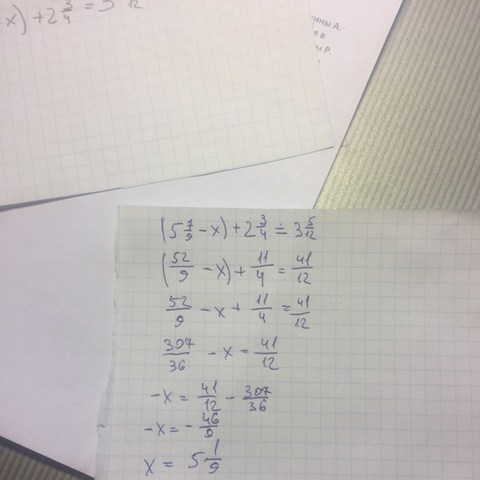 x) + 2 3/4 = 3 /12
(5 7/9 - x) + 2 3/4 = 3 5/12
(52/9 - x) + 11/4 = 41/12
52/9 - x + 11/4 = 41/12
307/36 - x = 41/12
-x = 41/12 - 307/36
-x = - 46/9
x = 5 1/9